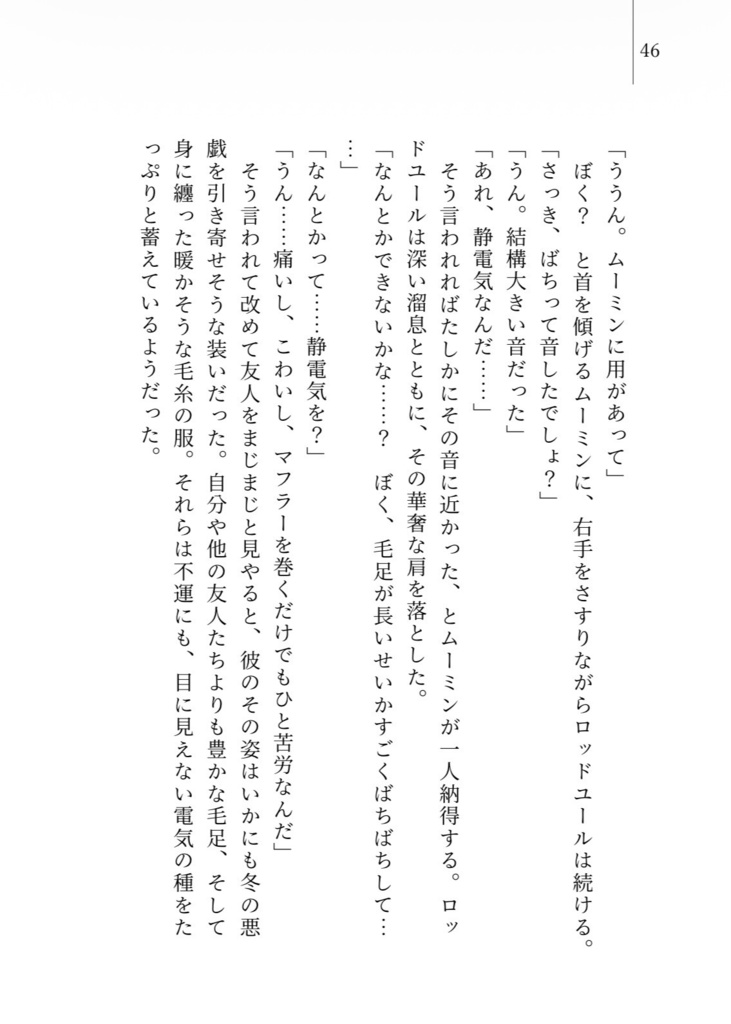 46
「ううん。ムーミンに用があって」
　ぼく？　と首を傾げるムーミンに、右手をさすりながらロッドユールは続ける。
「さっき、ばちって音したでしょ？」
「うん。結構大きい音だった」
「あれ、静電気なんだ……」
　そう言われればたしかにその音に近かった、とムーミンが一人納得する。ロッ
ドユールは深い溜息とともに、その華奢な肩を落とした。
「なんとかできないかな……？　ぼく、毛足が長いせいかすごくばちばちして…
…」
「なんとかって……静電気を？」
「うん……痛いし、こわいし、マフラーを巻くだけでもひと苦労なんだ」
　そう言われて改めて友人をまじまじと見やると、彼のその姿はいかにも冬の悪
戯を引き寄せそうな装いだった。自分や他の友人たちよりも豊かな毛足、そして
身に纏った暖かそうな毛糸の服。それらは不運にも、目に見えない電気の種をた
っぷりと蓄えているようだった。